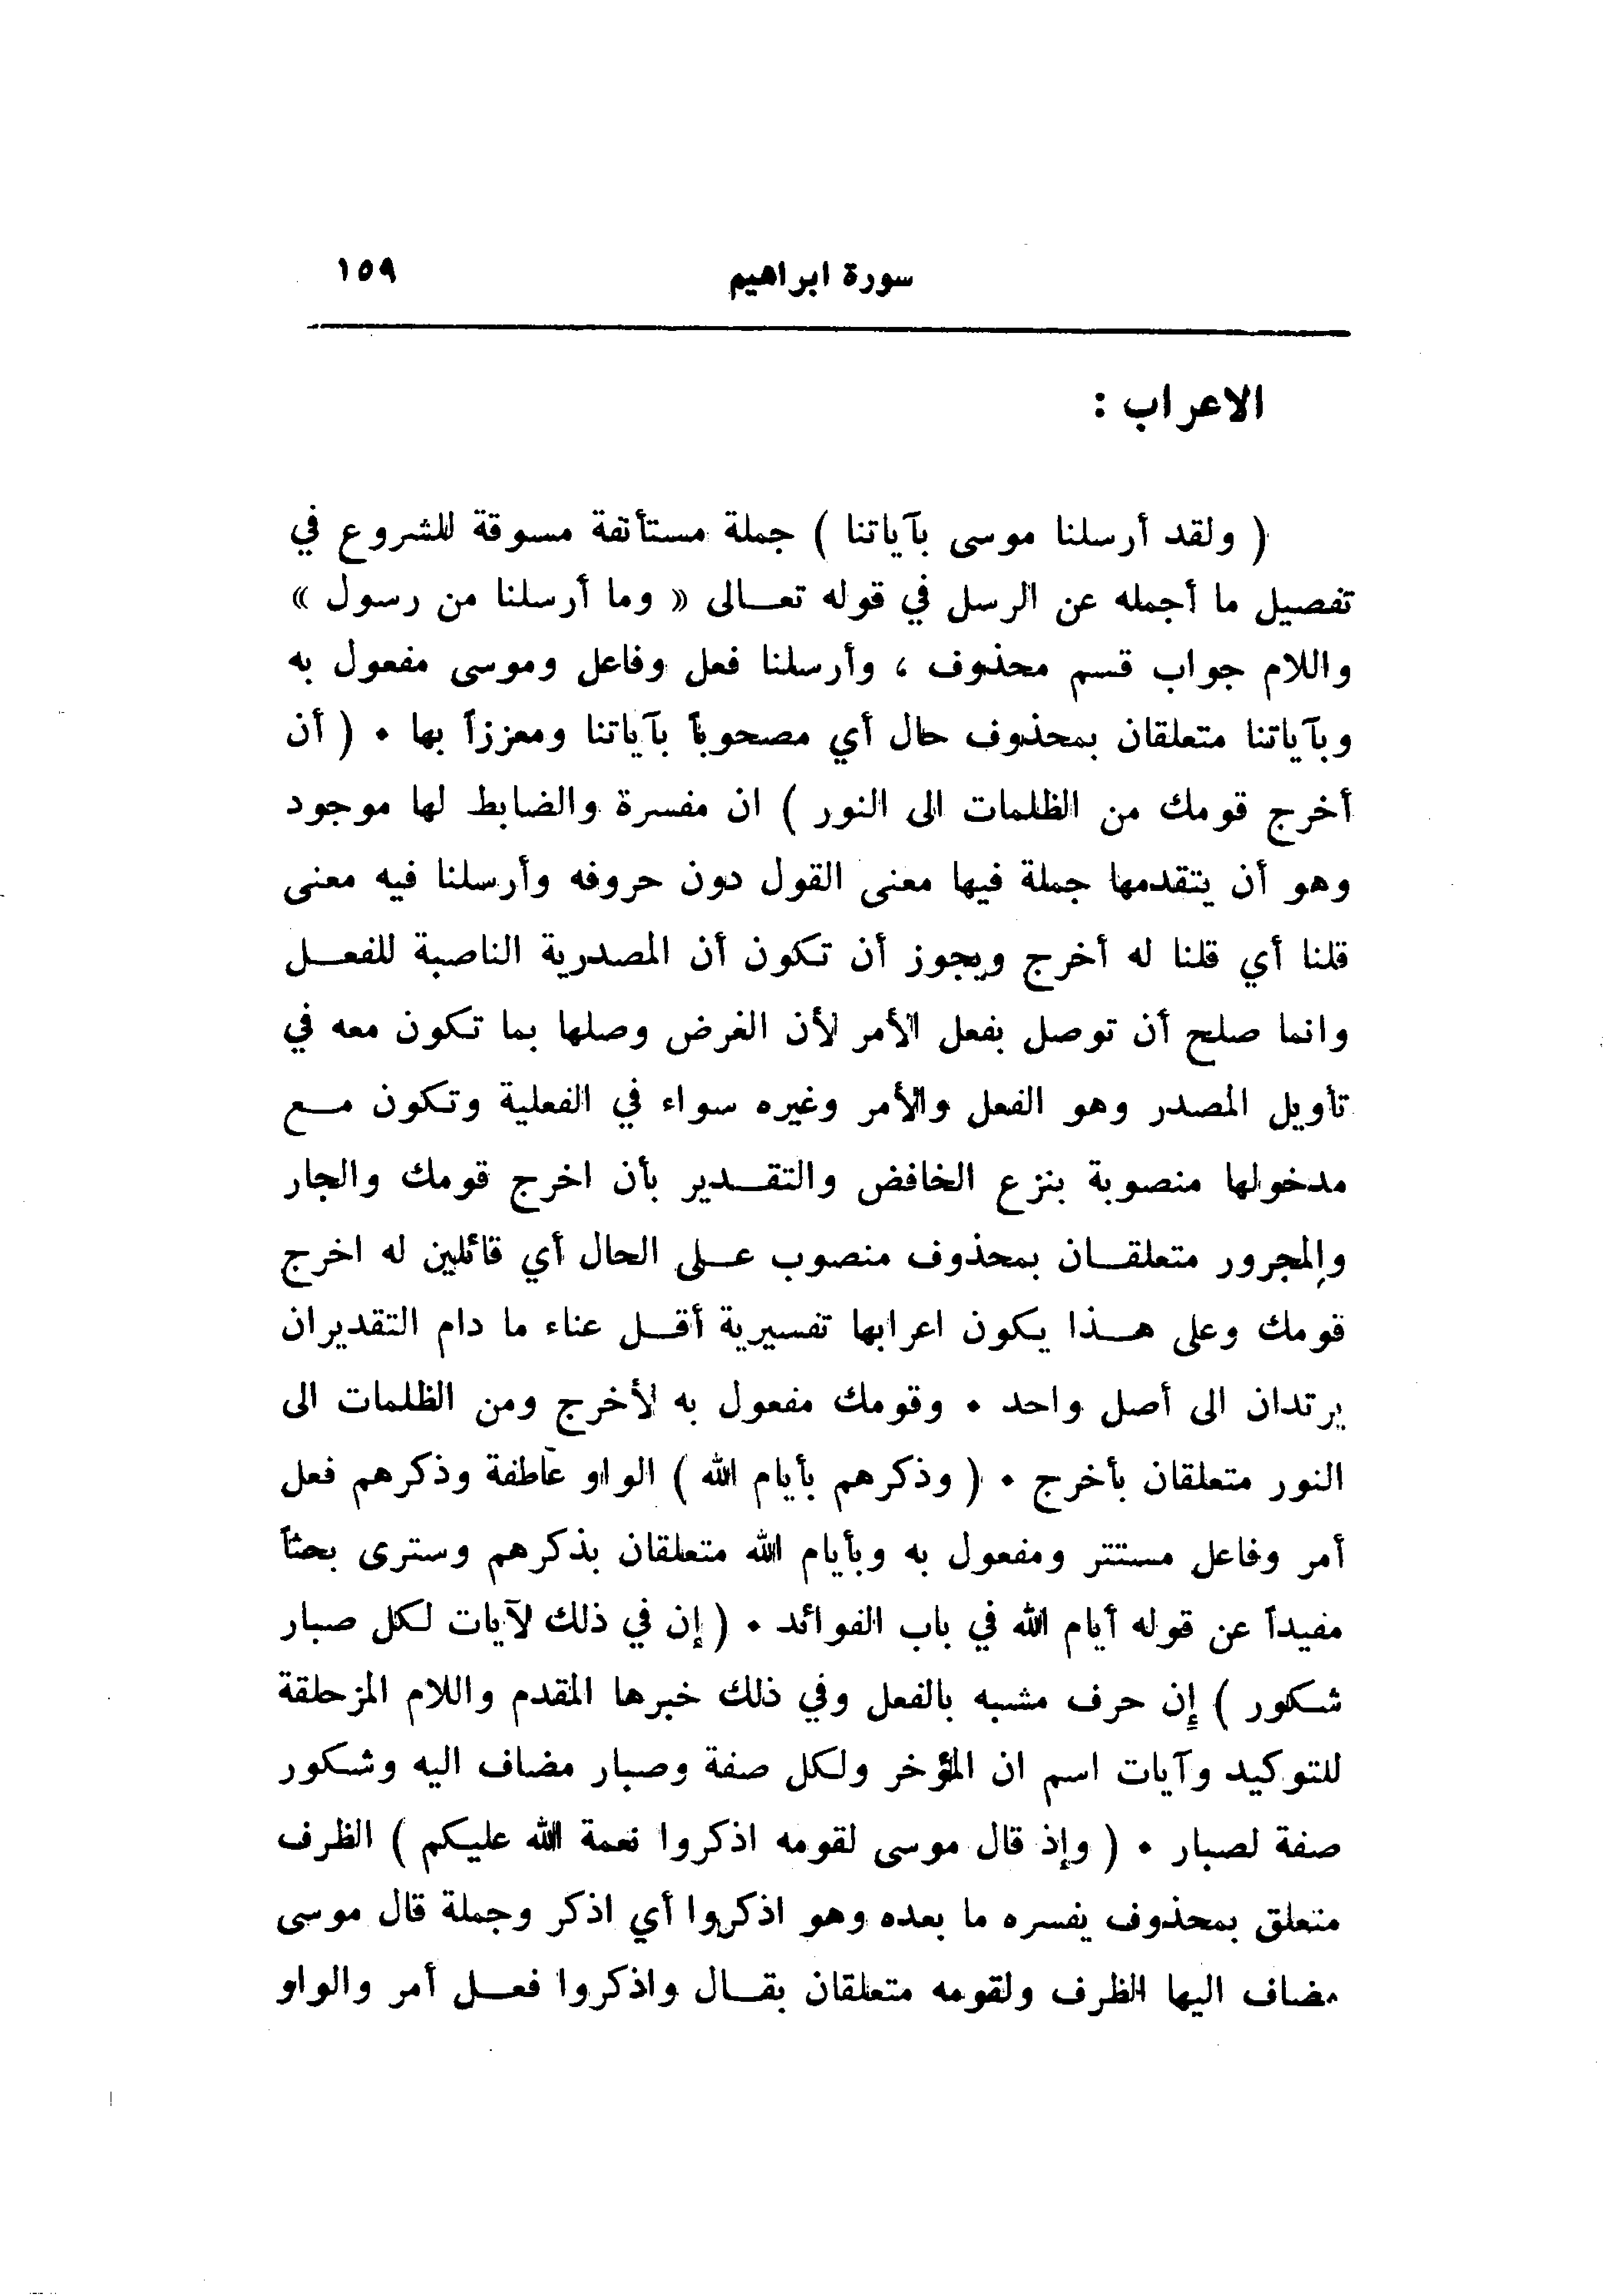 سورة ابراهيم ١٥٩
الاعراب :
( ولقد أرسلنا موسى بآياتنا ) جملة مستأنفة مسوقة للشروع في
تفصيل ما أجمله عن الرسل في قوله تعالى « وما أرسلنا من رسول »
واللام جواب قسم محذوف ، وأرسلنا فعل وفاعل وموسى مفعول به
وبآياتنا متعلقان بمحذوف حال أي مصحوباً بآياتنا ومعززاً بها ٠ ( أن
أخرج قومك من الظلمات الى النور ) ان مفسرة والضابط لها موجود
وهو أن يتقدمها جملة فيها معنى القول دون حروفه وأرسلنا فيه معنى
قلنا أي قلنا له أخرج ويجوز أن تكون أن المصدرية الناصبة للفعل
وانما صلح أن توصل بفعل الأمر لأن الغرض وصلها بما تكون معه في
تأويل المصدر وهو الفعل والأمر وغيره سواء في الفعلية وتكون مع
مدخولها منصوبة بنزع الخافض والتقدير بأن اخرج قومك والجار
والمجرور متعلقان بمحذوف منصوب على الحال أي قائلين له اخرج
قومك وعلى هذا يكون اعرابها تفسيرية أقل عناء ما دام التقديران
يرتدان الى أصل واحد ٠ وقومك مفعول به لأخرج ومن الظلمات الى
النور متعلقان بأخرج ٠ ( وذكرهم بأيام الله ) الواو عاطفة وذكرهم فعل
أمر وفاعل مستتر ومفعول به وبأيام الله متعلقان بذكرهم وسترى بحثاً
مفيداً عن قوله أيام الله في باب الفوائد ٠ ( إن في ذلك لآيات لكل صبار
شكور ) إن حرف مشبه بالفعل وفي ذلك خبرها المقدم واللام المزحلقة
للتوكيد وآيات اسم ان المؤخر ولكل صفة وصبار مضاف اليه وشكور
صفة لصبار ٠ ( وإذ قال موسى لقومه اذكروا نعمة الله عليكم ) الظرف
متعلق بمحذوف يفسره ما بعده وهو اذكروا أي اذكر وجملة قال موسى
مضاف اليها الظرف ولقومه متعلقان بقال واذكروا فعل أمر والواو